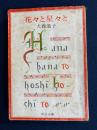 花々と星々と
犬養道子
Hana
hana to
hoshiho
shi to
中公文庫